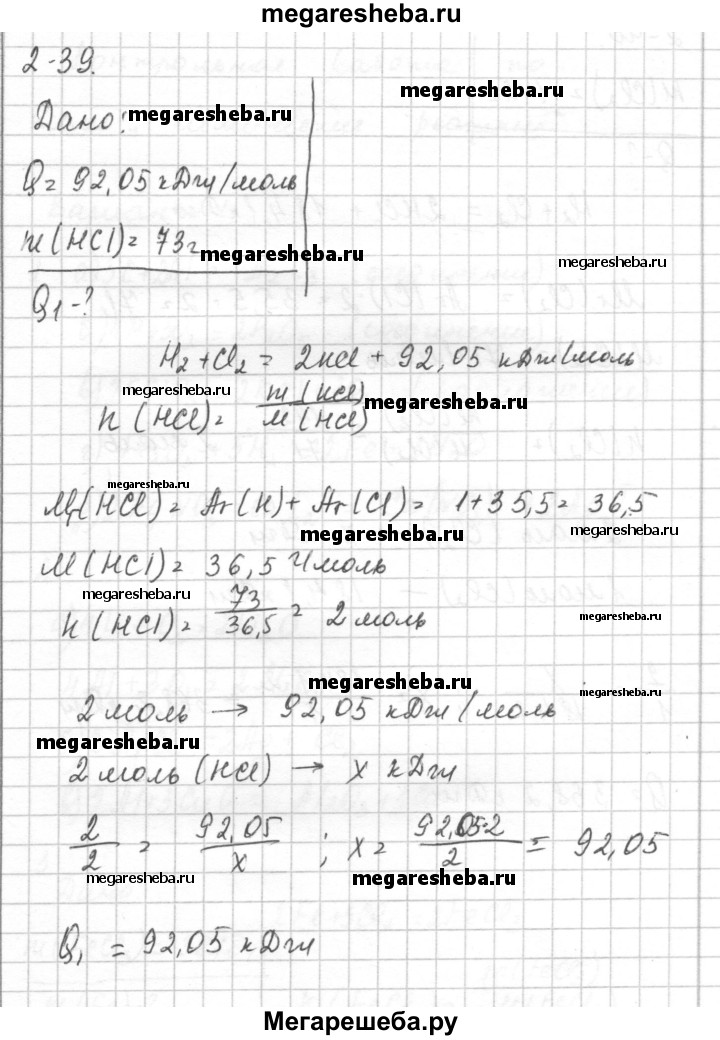 megaresheba.ru
2-39.
Дано: megaresheba.ru
megaresheba.ru
Q = 92,05 кДж/моль
m(HCl) = 73г megaresheba.ru
megaresheba.ru
Q1 - ?
H2 + Cl2 = 2HCl + 92,05 кДж/моль
megaresheba.ru
n(HCl) = m(HCl)/M(HCl) megaresheba.ru
megaresheba.ru
Mr(HCl) = Ar(H) + Ar(Cl) = 1 + 35,5 = 36,5
megaresheba.ru megaresheba.ru
M(HCl) = 36,5 г/моль
megaresheba.ru megaresheba.ru
n(HCl) = 73/36,5 = 2 моль
megaresheba.ru megaresheba.ru
2 моль → 92,05 кДж/моль
megaresheba.ru
2 моль (HCl) → x кДж
2/2 = 92,05/x ; x = 92,05·2/2 = 92,05
megaresheba.ru megaresheba.ru
Q1 = 92,05 кДж
Мегарешеба.ру